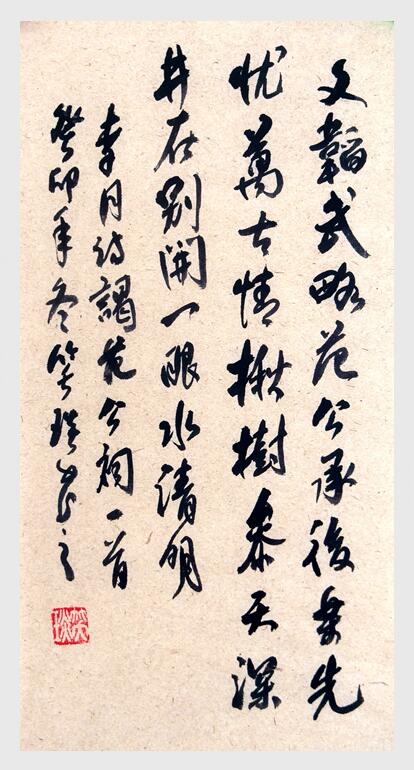 文韜武略范公承後樂先
忧萬古情楸樹叅天深
井在别開一眼水清明
李月诗謁范公祠一首
癸卯年冬书之